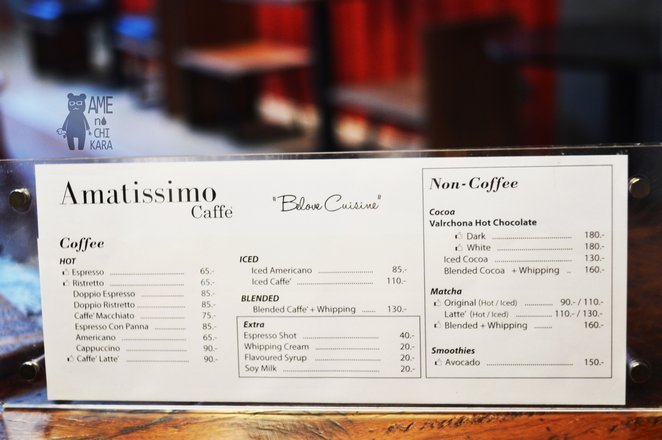 AME
no
CHI
KARA
Amatissimo
Caffe'
"Belove Cuisine"
Coffee
HOT
Espresso 65.-
Ristretto 65.-
Doppio Espresso 85.-
Doppio Ristretto 85.-
Caffe' Macchiato 75.-
Espresso Con Panna 85.-
Americano 65.-
Cappuccino 90.-
Caffe' Latte' 90.-
ICED
Iced Americano 85.-
Iced Caffe' 110.-
BLENDED
Blended Caffe' + Whipping 130.-
Extra
Espresso Shot 40.-
Whipping Cream 20.-
Flavoured Syrup 20.-
Soy Milk 20.-
Non-Coffee
Cocoa
Valrchona Hot Chocolate
Dark 180.-
White 180.-
Iced Cocoa 130.-
Blended Cocoa + Whipping 160.-
Matcha
Original (Hot / Iced) 90.- / 110.-
Latte' (Hot / Iced) 110.- / 130.-
Blended + Whipping 160.-
Smoothies
Avocado 150.-